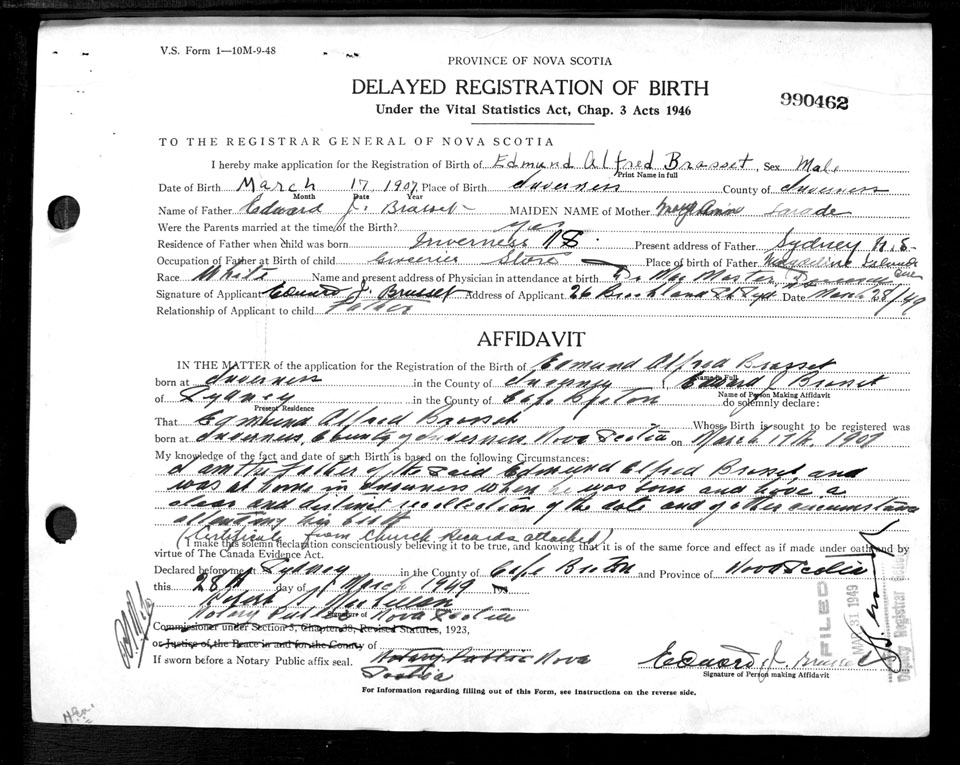 V.S. Form 1—10M-9-48
PROVINCE OF NOVA SCOTIA
DELAYED REGISTRATION OF BIRTH
990462
Under the Vital Statistics Act, Chap. 3 Acts 1946
TO THE REGISTRAR GENERAL OF NOVA SCOTIA
I hereby make application for the Registration of Birth of Edmund Alfred Brasset, Sex Male
Print Name in full
Date of Birth March 17 1907 Place of Birth Inverness County of Inverness
Month Date Year
Name of Father Edward J. Brasset MAIDEN NAME of Mother Mary Ann
Were the Parents married at the time of the Birth? Yes
Residence of Father when child was born Inverness N S. Present address of Father Sydney N.S.
Occupation of Father at Birth of child Groceries Store Place of birth of Father Magdeline Islands
Race White Name and present address of Physician in attendance at birth Dr Mac Master,
Signature of Applicant Edward J. Brasset Address of Applicant 26 Brookland St Syd Date March 28/49
Relationship of Applicant to child Father
AFFIDAVIT
IN THE MATTER of the application for the Registration of the Birth of Edmund Alfred Brasset
Name in Full
born at Inverness in the County of Inverness Edward J. Brasset
Name of Person Making Affidavit
of Sydney in the County of Cape Breton do solemnly declare:
Present Residence
That Edmund Alfred Brasset Whose Birth is sought to be registered was
born at Inverness, County of Inverness Nova Scotia on March 17th, 1907
My knowledge of the fact and date of such Birth is based on the following Circumstances:
I am the father of the said Edmund Alfred Brasset, and
was at home in Inverness when he was born and have a
clear and distinct recollection of the date and of other circumstances
attending his birth
(Certificate from Church Records attached)
I make this solemn declaration conscientiously believing it to be true, and knowing that it is of the same force and effect as if made under oath and by
virtue of The Canada Evidence Act.
Declared before me at Sydney in the County of Cape Breton and Province of Nova Scotia
this 28th day of March 1949 195
Notary Public Nova Scotia
Signature of
Commissioner under Section 3, Chapter 38, Revised Statutes, 1923,
or Justice of the Peace in and for the County of
If sworn before a Notary Public affix seal. Notary Public Nova
Scotia
Edward J. Brasset
Signature of Person making Affidavit
For Information regarding filling out of this Form, see instructions on the reverse side.
FILED
MAR 31 1949
Deputy Registrar General